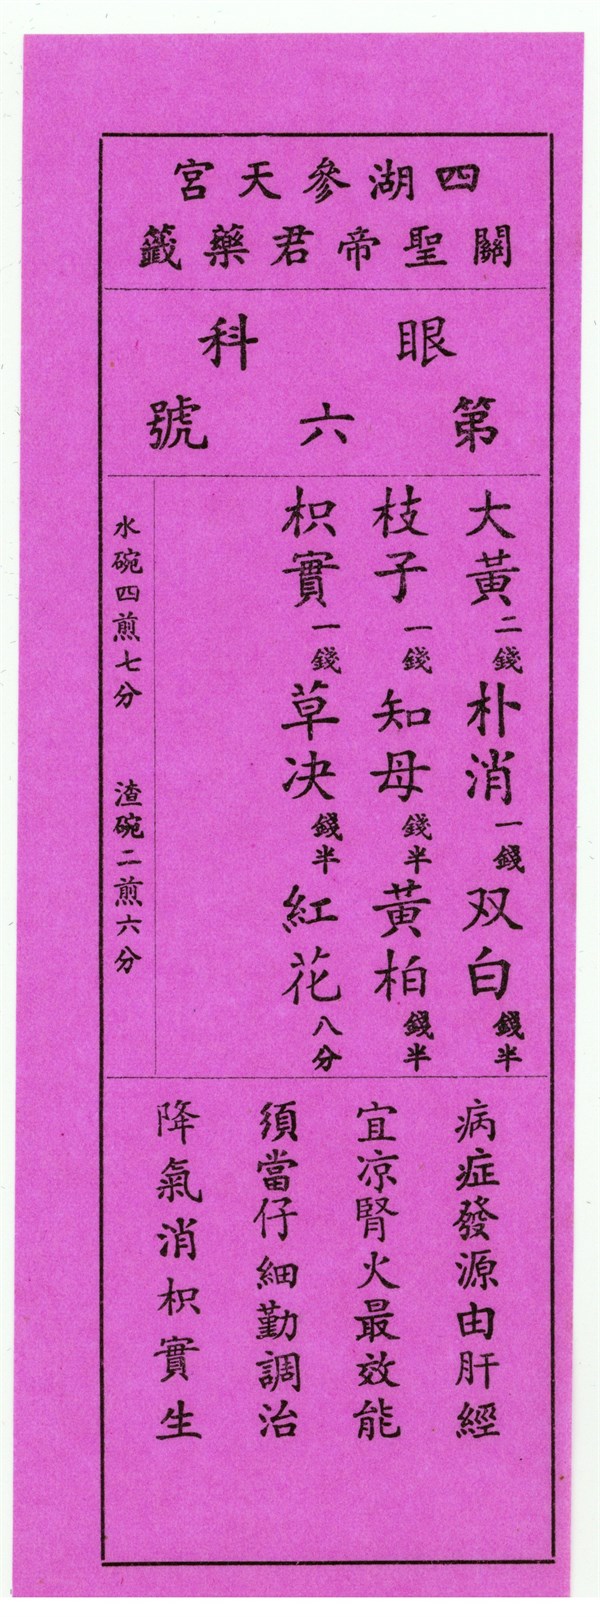 四湖參天宮
關聖帝君藥籤
眼科
第六號
大黃二錢 朴消一錢 双白錢半
枝子一錢 知母錢半 黃柏錢半
枳實一錢 草决錢半 紅花八分
水碗四煎七分 渣碗二煎六分
病症發源由肝經
宜凉腎火最效能
須當仔細勤調治
降氣消枳實生